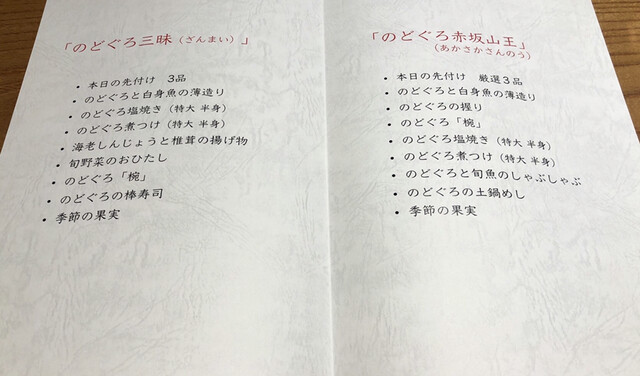 「のどぐろ三昧（ざんまい）」
• 本日の先付け　3品
• のどぐろと白身魚の薄造り
• のどぐろ塩焼き（特大 半身）
• のどぐろ煮つけ（特大 半身）
• 海老しんじょうと椎茸の揚げ物
• 旬野菜のおひたし
• のどぐろ「椀」
• のどぐろの棒寿司
• 季節の果実
「のどぐろ赤坂山王」
（あかさかさんのう）
• 本日の先付け　厳選3品
• のどぐろと白身魚の薄造り
• のどぐろの握り
• のどぐろ「椀」
• のどぐろ塩焼き（特大 半身）
• のどぐろ煮つけ（特大 半身）
• のどぐろと旬魚のしゃぶしゃぶ
• のどぐろの土鍋めし
• 季節の果実